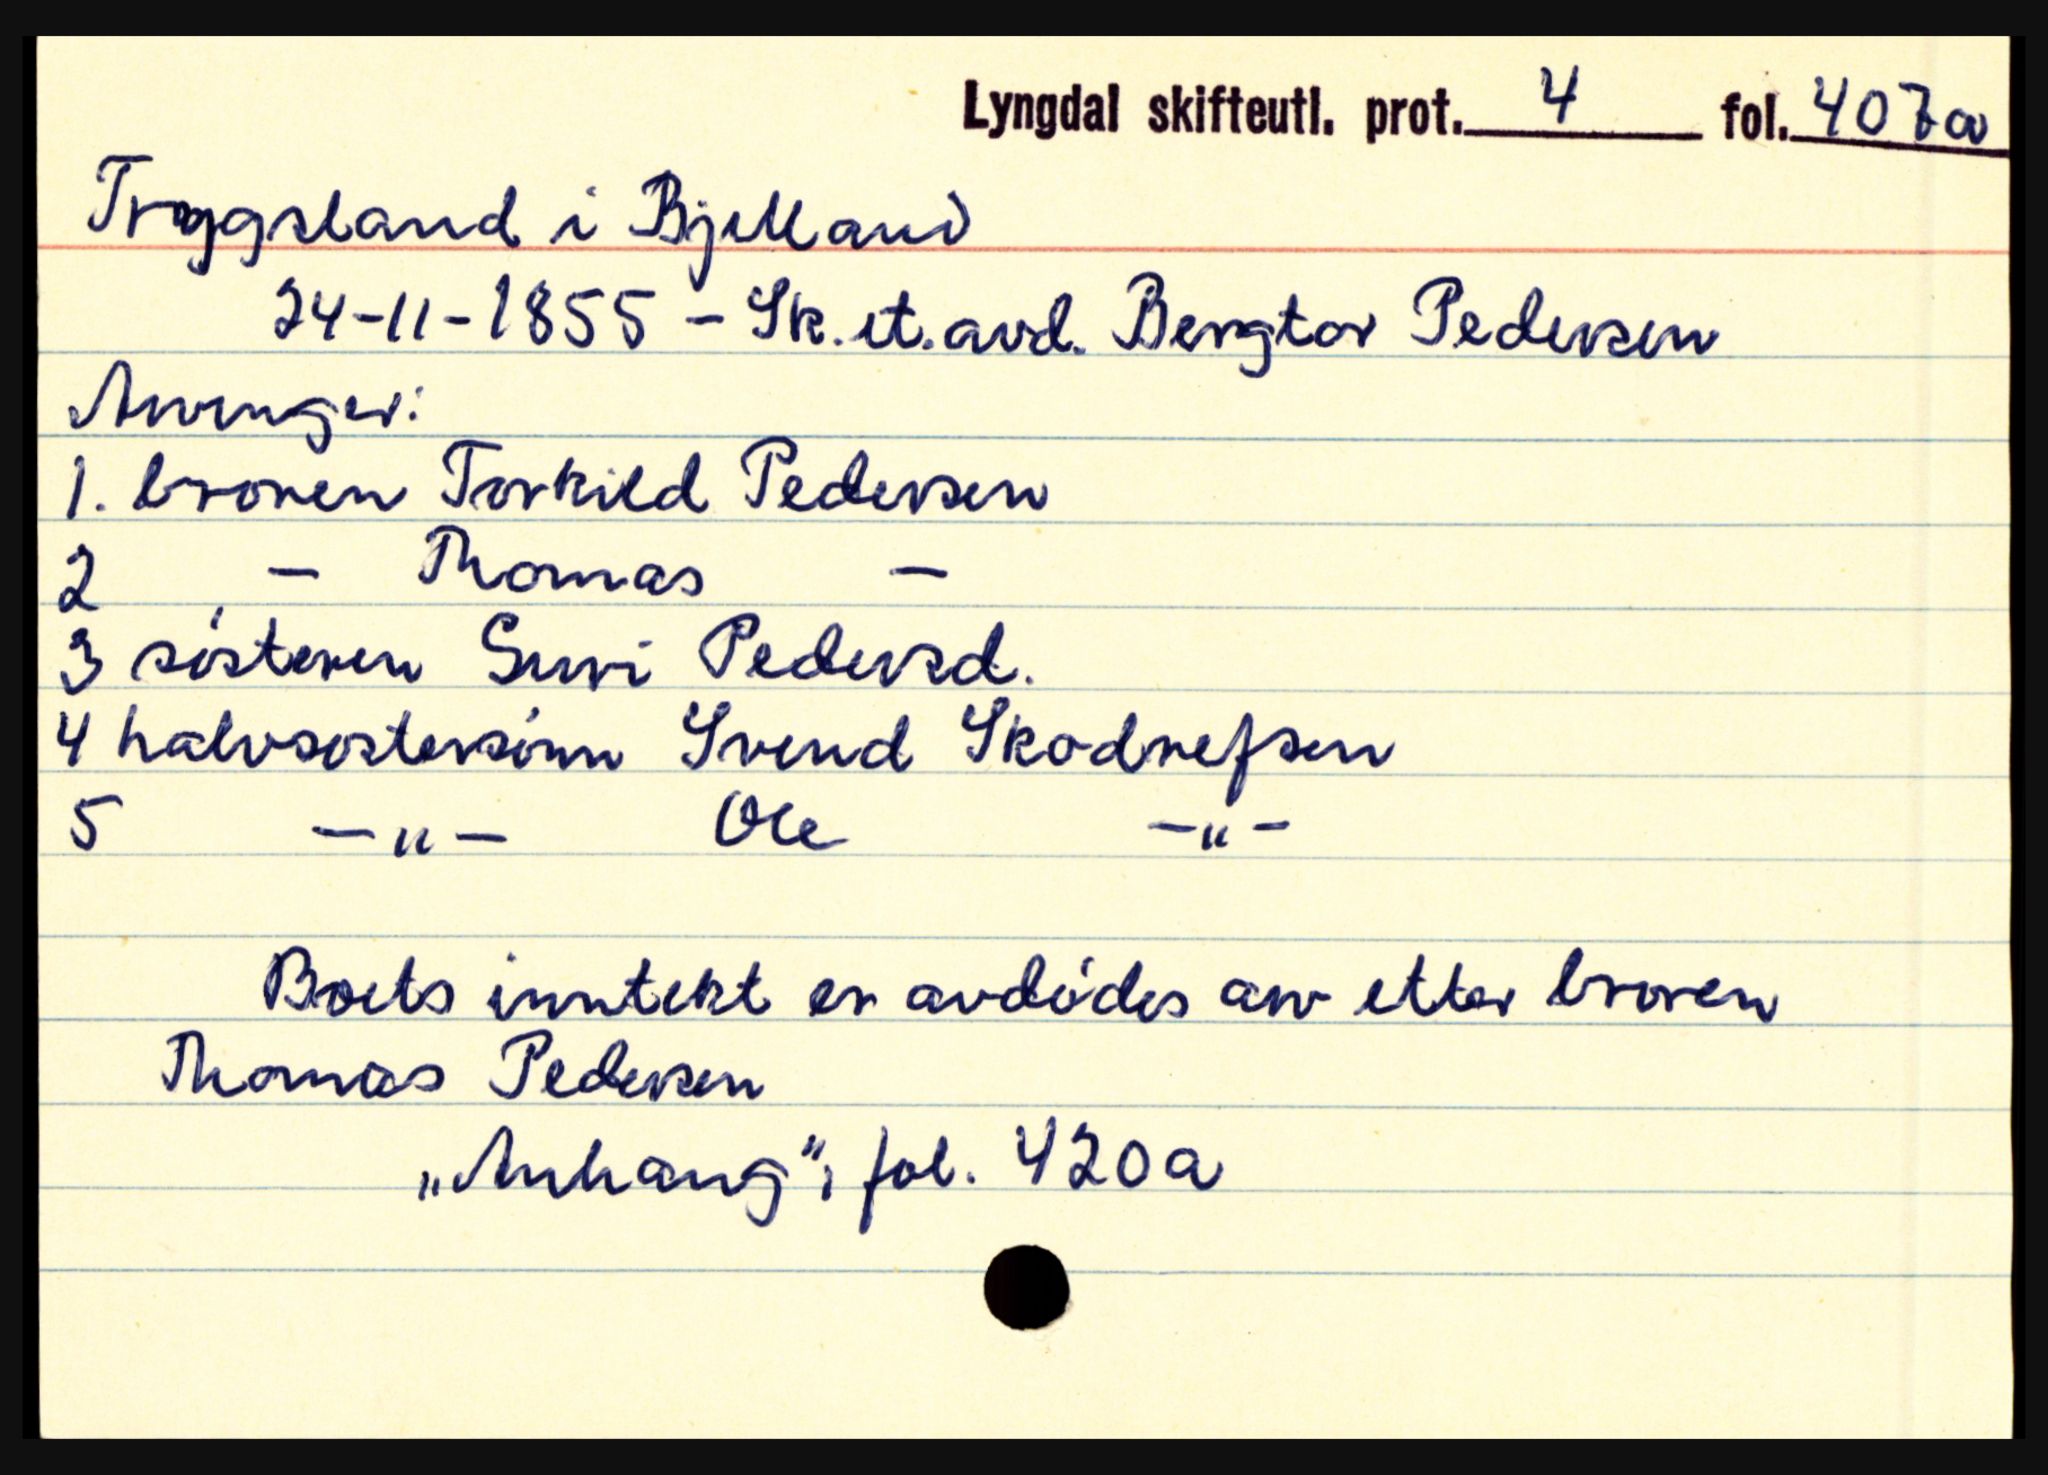 Lyngdal skifteutl. prot. 4 fol. 407a
Tryggsland i Bjelland
24-11-1855 - Sk. et. avd. Bergtor Pedersen
Arvinger:
1. broren Torkild Pedersen
2 - Thomas -
3 søsteren Guri Pedersd.
4 halvsøstersønn Svend Skodnefsen
5 -"- Ole -"-
Boets inntekt er avdødes arv etter broren
Thomas Pedersen
„Anhang“, fol. 420a